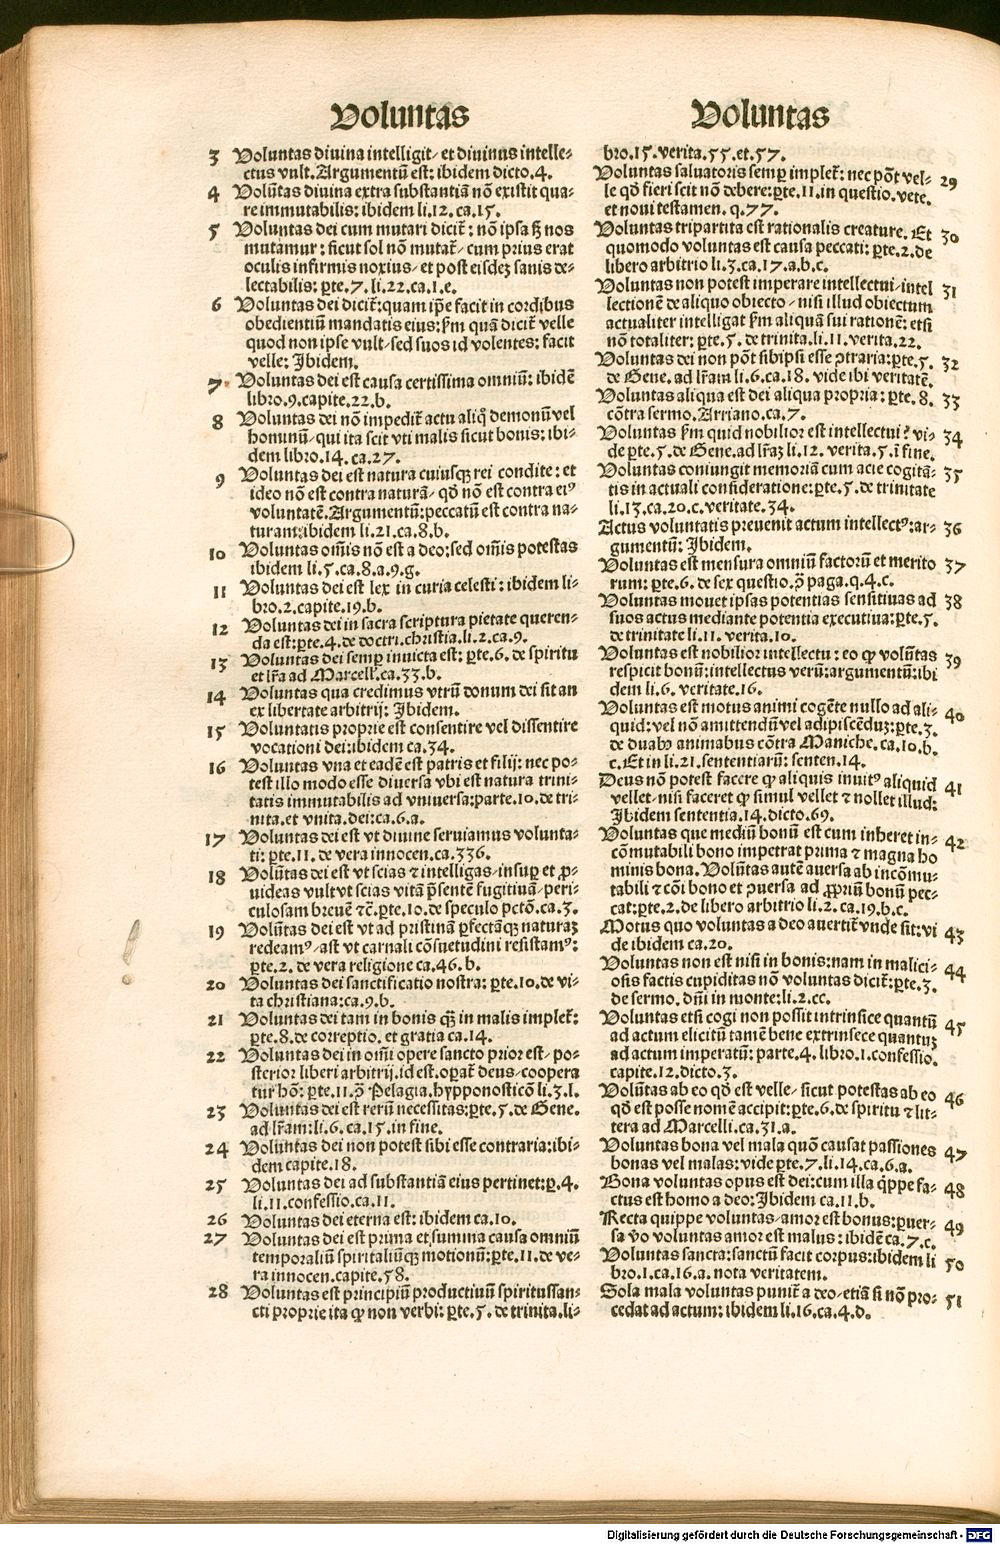 Voluntas
3 Voluntas diuina intelligit/ et diuinus intelle-
ctus vult. Argumentū est: ibidem dicto.4.
4 Volūtas diuina extra substantiā nō existit qua-
re immutabilis: ibidem li.12.ca.15.
5 Voluntas dei cum mutari dicit̄: nō ipsa sꝫ nos
mutamur: sicut sol nō mutat̄/ cum prius erat
oculis infirmis noxius/ et post eisdeꝫ sanis de-
lectabilis: ꝑte.7.li.22.ca.1.e.
6 Voluntas dei dicit̄:quam ip̄e facit in cordibus
obedientiū mandatis eius: ẜm quā dicit̄ velle
quod non ipse vult/ sed suos id volentes: facit
velle: Ibidem.
7 Voluntas dei est causa certissima omniū: ibidē
libro.9.capite.22.b.
8 Voluntas dei nō impedit̄ actu aliq̄ demonū vel
hominū/ qui ita scit vti malis sicut bonis: ibi-
dem libro.14.ca.27.
9 Voluntas dei est natura cuiusqꝫ rei condite: et
ideo nō est contra naturā/ qđ nō est contra eiꝰ
voluntatē. Argumentū: peccatū est contra na-
turam:ibidem li.21.ca.8.b.
10 Voluntas oīs nō est a deo:sed oīs potestas
ibidem li.5.ca.8.a.9.g.
11 Voluntas dei est lex in curia celesti: ibidem li-
bro.2.capite.19.b.
12 Voluntas dei in sacra scriptura pietate queren-
da est:ꝑte.4.de doctri.christia.li.2.ca.9.
13 Voluntas dei semꝑ inuicta est: ꝑte.6. de spiritu
et lr̄a ad Marcell.ca.33.b.
14 Voluntas qua credimus vtrū donum dei sit an
ex libertate arbitrij: Ibidem.
15 Voluntatis proprie est consentire vel dissentire
vocationi dei:ibidem ca.34.
16 Voluntas vna et eadē est patris et filij: nec po-
test illo modo esse diuersa vbi est natura trini-
tatis immutabilis ad vniuersa:parte.10.de tri-
nita.et vnita.dei:ca.6.a.
17 Voluntas dei est vt diuine seruiamus volunta-
ti: ꝑte.11. de vera innocen.ca.336.
18 Volūtas dei est vt scias ⁊ intelligas/ insuꝑ et ꝓ-
uideas vult vt scias vitā p̄sentē fugitiuā/ peri-
culosam breuē ⁊c̄.ꝑte.10.de speculo pctō.ca.3.
19 Volūtas dei est vt ad pristinā ꝑfectāqꝫ naturaꝫ
redeamꝰ/ ast vt carnali cōsuetudini resistamꝰ:
ꝑte.2. de vera religione ca.46.b.
20 Voluntas dei sanctificatio nostra: ꝑte.10.de vi-
ta christiana:ca.9.b.
21 Voluntas dei tam in bonis q̄ꝫ in malis implet̄:
ꝑte.8.de correptio. et gratia ca.14.
22 Voluntas dei in oī opere sancto prior est/ po-
sterior liberi arbitrij.id est.oꝑat̄ deus/ coopera
tur hō: ꝑte.11.ↄ̄ Pelagia.hypponosticō li.3.l.
23 Voluntas dei est rerū necessitas:ꝑte.5.de Gene.
ad lr̄am:li.6.ca.15.in fine.
24 Voluntas dei non potest sibi esse contraria:ibi-
dem capite.18.
25 Voluntas dei ad substantiā eius pertinet:ꝑ.4.
li.11.confessio.ca.11.
26 Voluntas dei eterna est: ibidem ca.10.
27 Voluntas dei est prima et summa causa omniū
temporaliū spiritaliūqꝫ motionū:ꝑte.11.de ve-
ra innocen.capite.58.
28 Voluntas est principiū productiuū spiritussan-
cti proprie ita ꝙ non verbi: ꝑte.5. de trinita.li-
Voluntas
bro.15.verita.55.et.57.
Voluntas saluatoris semꝑ implet̄: nec pōt vel- 29
le qđ fieri scit nō debere:ꝑte.11.in questio.vete.
et noui testamen. q.77.
Voluntas tripartita est rationalis creature. Et 30
quomodo voluntas est causa peccati: ꝑte.2.de
libero arbitrio li.3.ca.17.a.b.c.
Voluntas non potest imperare intellectui/ intel 31
lectionē de aliquo obiecto/ nisi illud obiectum
actualiter intelligat ẜm aliquā sui rationē: etsi
nō totaliter: ꝑte.5. de trinita.li.11.verita.22.
Voluntas dei non pōt sibiipsi esse ↄtraria:ꝑte.5. 32
de Gene. ad lr̄am li.6.ca.18. vide ibi veritatē.
Voluntas aliqua est dei aliqua propria: ꝑte.8. 33
cōtra sermo.Arriano.ca.7.
Voluntas ẜm quid nobilior est intellectui? vi- 34
de ꝑte.5.de Gene.ad lr̄aꝫ li.12. verita.5.ī fine.
Voluntas coniungit memoriā cum acie cogitā- 35
tis in actuali consideratione:ꝑte.5.de trinitate
li.13.ca.20.c.veritate.34.
Actus voluntatis preuenit actum intellectꝰ:ar- 36
gumentū: Ibidem.
Voluntas est mensura omniū factorū et merito 37
rum: ꝑte.6. de sex questio.ↄ̄ paga.q.4.c.
Voluntas mouet ipsas potentias sensitiuas ad 38
suos actus mediante potentia executiua:ꝑte.5.
de trinitate li.11. verita.10.
Voluntas est nobilior intellectu: eo ꝙ volūtas 39
respicit bonū:intellectus verū:argumentū:ibi
dem li.6. veritate.16.
Voluntas est motus animi cogēte nullo ad ali- 40
quid: vel nō amittendū vel adipiscēduꝫ:ꝑte.3.
de duabꝰ animabus cōtra Maniche.ca.10.b.
c.Et in li.21.sententiarū: senten.14.
Deus nō potest facere ꝙ aliquis inuitꝰ aliquid 41
vellet/nisi faceret ꝙ simul vellet ⁊ nollet illud:
Ibidem sententia.14.dicto.69.
Voluntas que mediū bonū est cum inheret in- 42
cōmutabili bono impetrat prima ⁊ magna ho
minis bona. Volūtas autē auersa ab incōmu-
tabili ⁊ cōi bono et ↄuersa ad ꝓpriū bonū pec-
cat:ꝑte.2.de libero arbitrio li.2.ca.19.b.c.
Motus quo voluntas a deo auertit̄ vnde sit:vi 43
de ibidem ca.20.
Voluntas non est nisi in bonis:nam in malici- 44
osis factis cupiditas nō voluntas dicit̄:ꝑte.3.
de sermo. dn̄i in monte:li.2.cc.
Voluntas etsi cogi non possit intrinsice quantū 45
ad actum elicitū tamē bene extrinsece quantuꝫ
ad actum imperatū: parte.4. libro.1.confessio.
capite.12.dicto.3.
Volūtas ab eo qđ est velle/ sicut potestas ab eo 46
qđ est posse nomē accipit:ꝑte.6.de spiritu ⁊ lit-
tera ad Marcelli.ca.31.a.
Voluntas bona vel mala quō causat passiones 47
bonas vel malas: vide ꝑte.7.li.14.ca.6.a.
Bona voluntas opus est dei:cum illa q̄ppe fa- 48
ctus est homo a deo:Ibidem ca.11.b.
Recta quippe voluntas/amor est bonus:ꝑuer- 49
sa v̄o voluntas amor est malus: ibidē ca.7.c.
Voluntas sancta:sanctū facit corpus:ibidem li 50
bro.1.ca.16.a. nota veritatem.
Sola mala voluntas punit̄ a deo/etiā si nō pro- 51
cedat ad actum: ibidem li.16.ca.4.d.
Digitalisierung gefördert durch die Deutsche Forschungsgemeinschaft - DFG